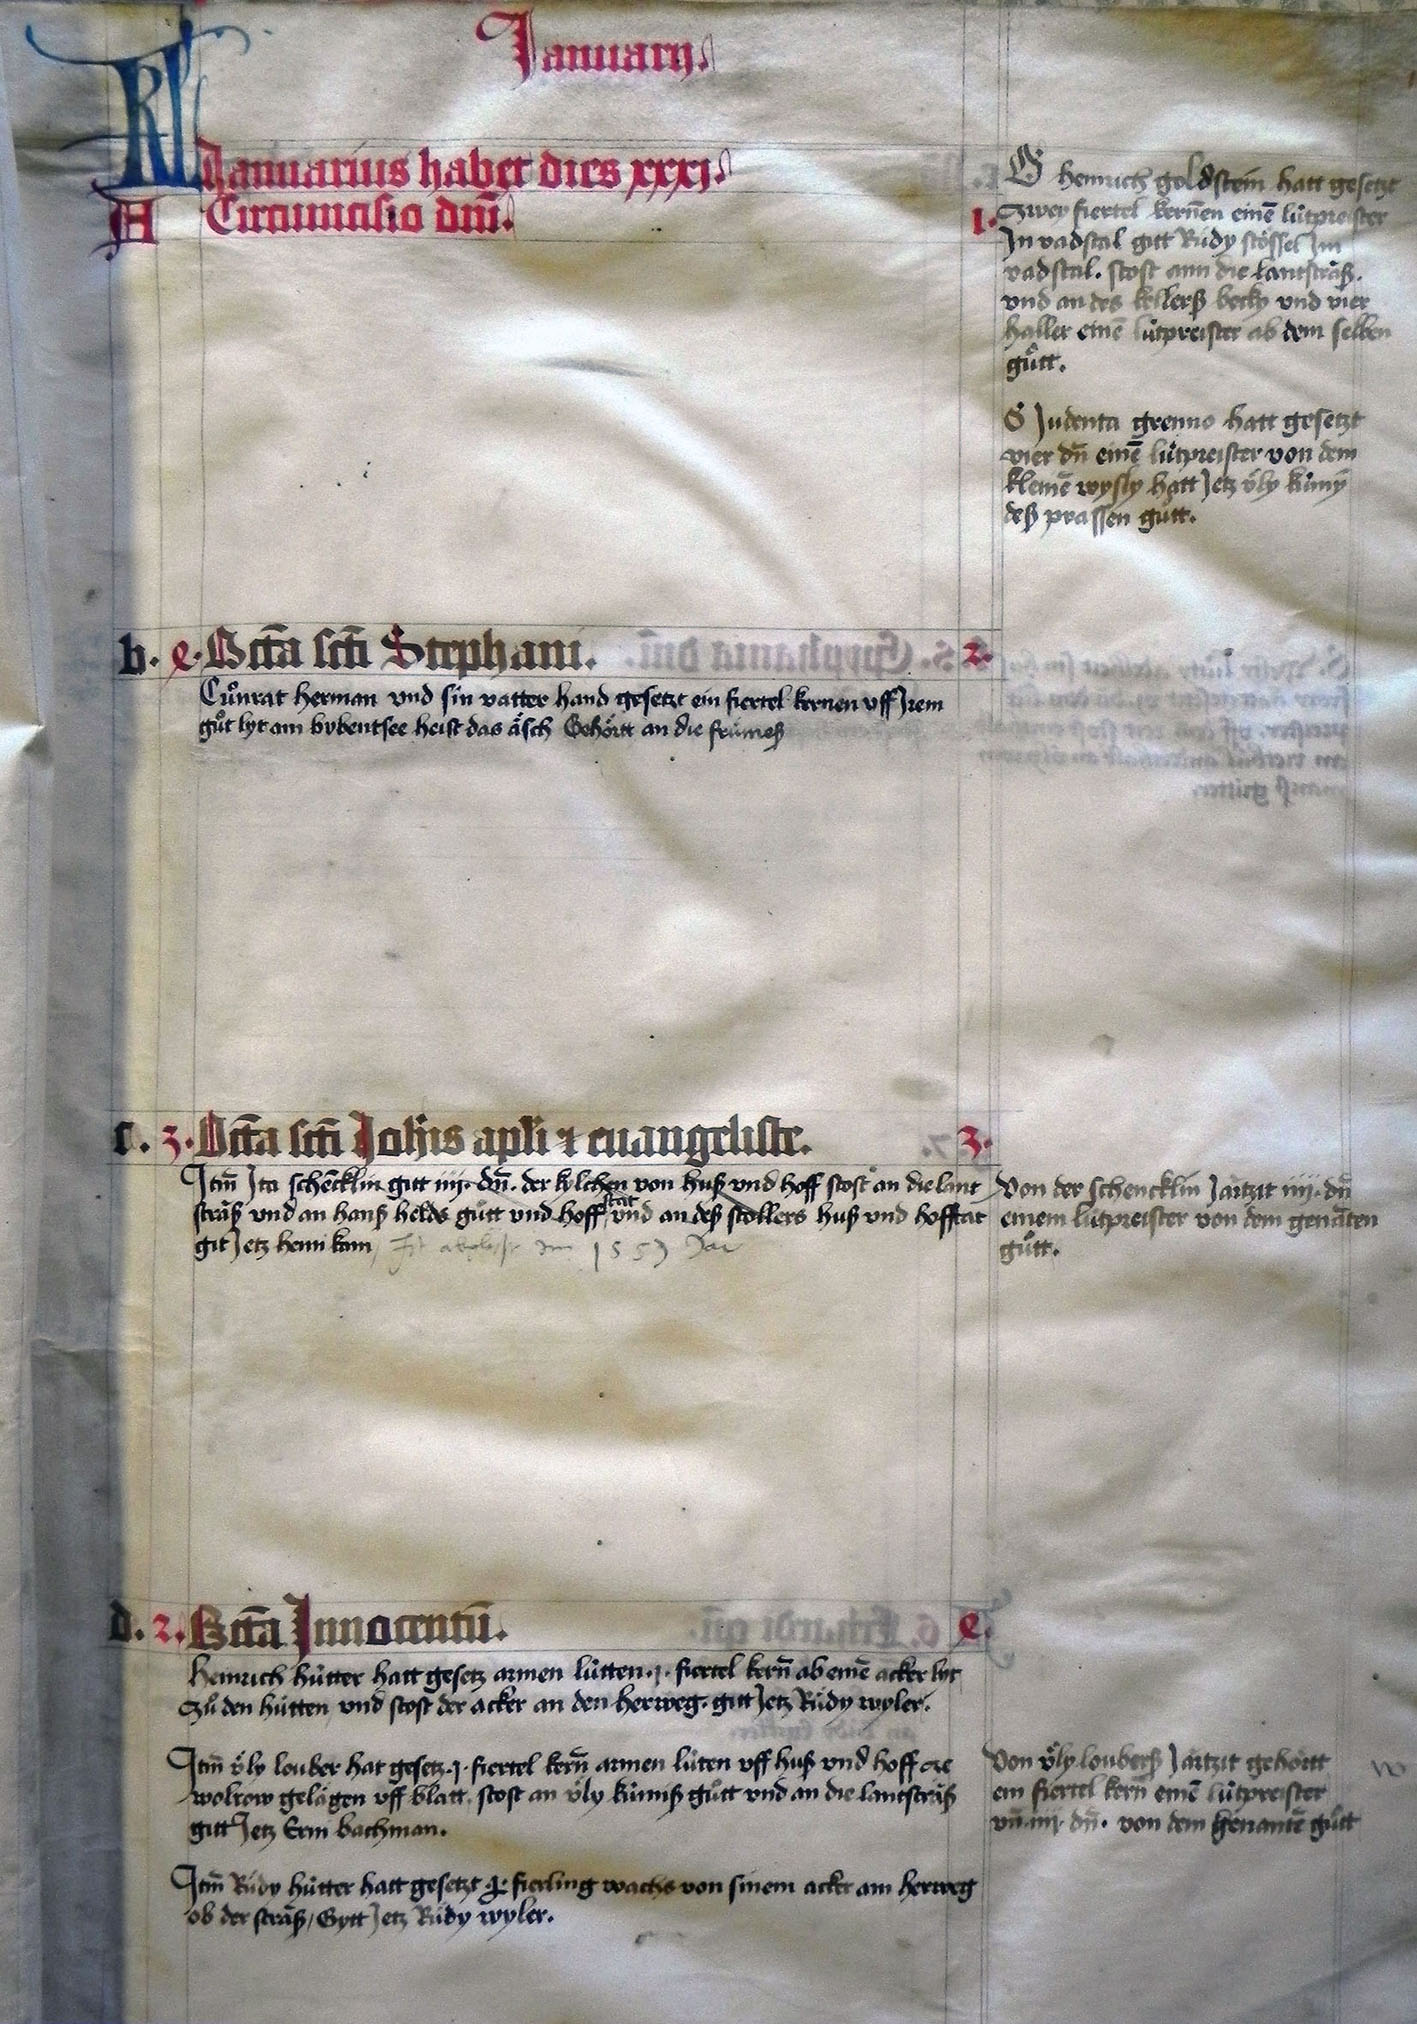 Januarij
KL Januarius habet dies xxxj
A Circumcisio dn̄i.
1.
S heinrich goldstein hatt gesetzt
zwey fiertel kernen einē lütpreister
In vadstal gitt Rüdy stössel Im
vadstal. stost ann die lantsträß.
vnd an des kellerß becky vnd vier
haller einē lütpreister ab dem selben
gůtt.
S Judenta gremo hatt gesetzt
vier dn̄ einē lütpreister von dem
kleinē wysly hatt Jetz ůly kůny
deß prassen gůtt.
b. 4. Octa scti Stephani. 2.
Cůnrat herman vnd sin vatter hand gesetzt ein fiertel kernen vff Jrem
gůt lyt am bybentsee heist das äsch Gehört an die frümeß
c. 3. Octa scti Johis apli ⁊ euangeliste. 3.
Itm̄ Ita schēcklin gitt iiij. dn̄. der kylchen von huß vnd hoff stost an die lant
sträß vnd an hanß helds gůtt vnd hoffstat vnd an deß stollers huß vnd hofftat
git Jetz heini kam Im 1557 Jar
Von der schencklin Jartzit iiij. dn̄
einem lütpreister von dem genāten
gůtt.
d. 2. Octa Innocentū. 4.
Heinrich hütter hatt gesetz armen lütten .j. fiertel kern̄ ab einē acker lyt
zů den hütten vnd stost der acker an den herweg. gitt Jetz Rüdy wyler.
Itm̄ ůly louber hat gesetz .j. fiertel kern̄ armen lüten vff huß vnd hoff ze
wolrow gelägen vff blatt. stost an ůly kůniß gůtt vnd an die lantsträß
gitt Jetz Erni bachman.
Von ůly louberß Jartzit gehörtt
ein fiertel kern̄ einē lütpreister
vn̄ iiij. dn̄. von dem genantē gůtt
Itm̄ Rüdy hütter hatt gesetzt fierling wachs von sinem acker am herweg
ob der sträß / Gytt Jetz Rüdy wyler.